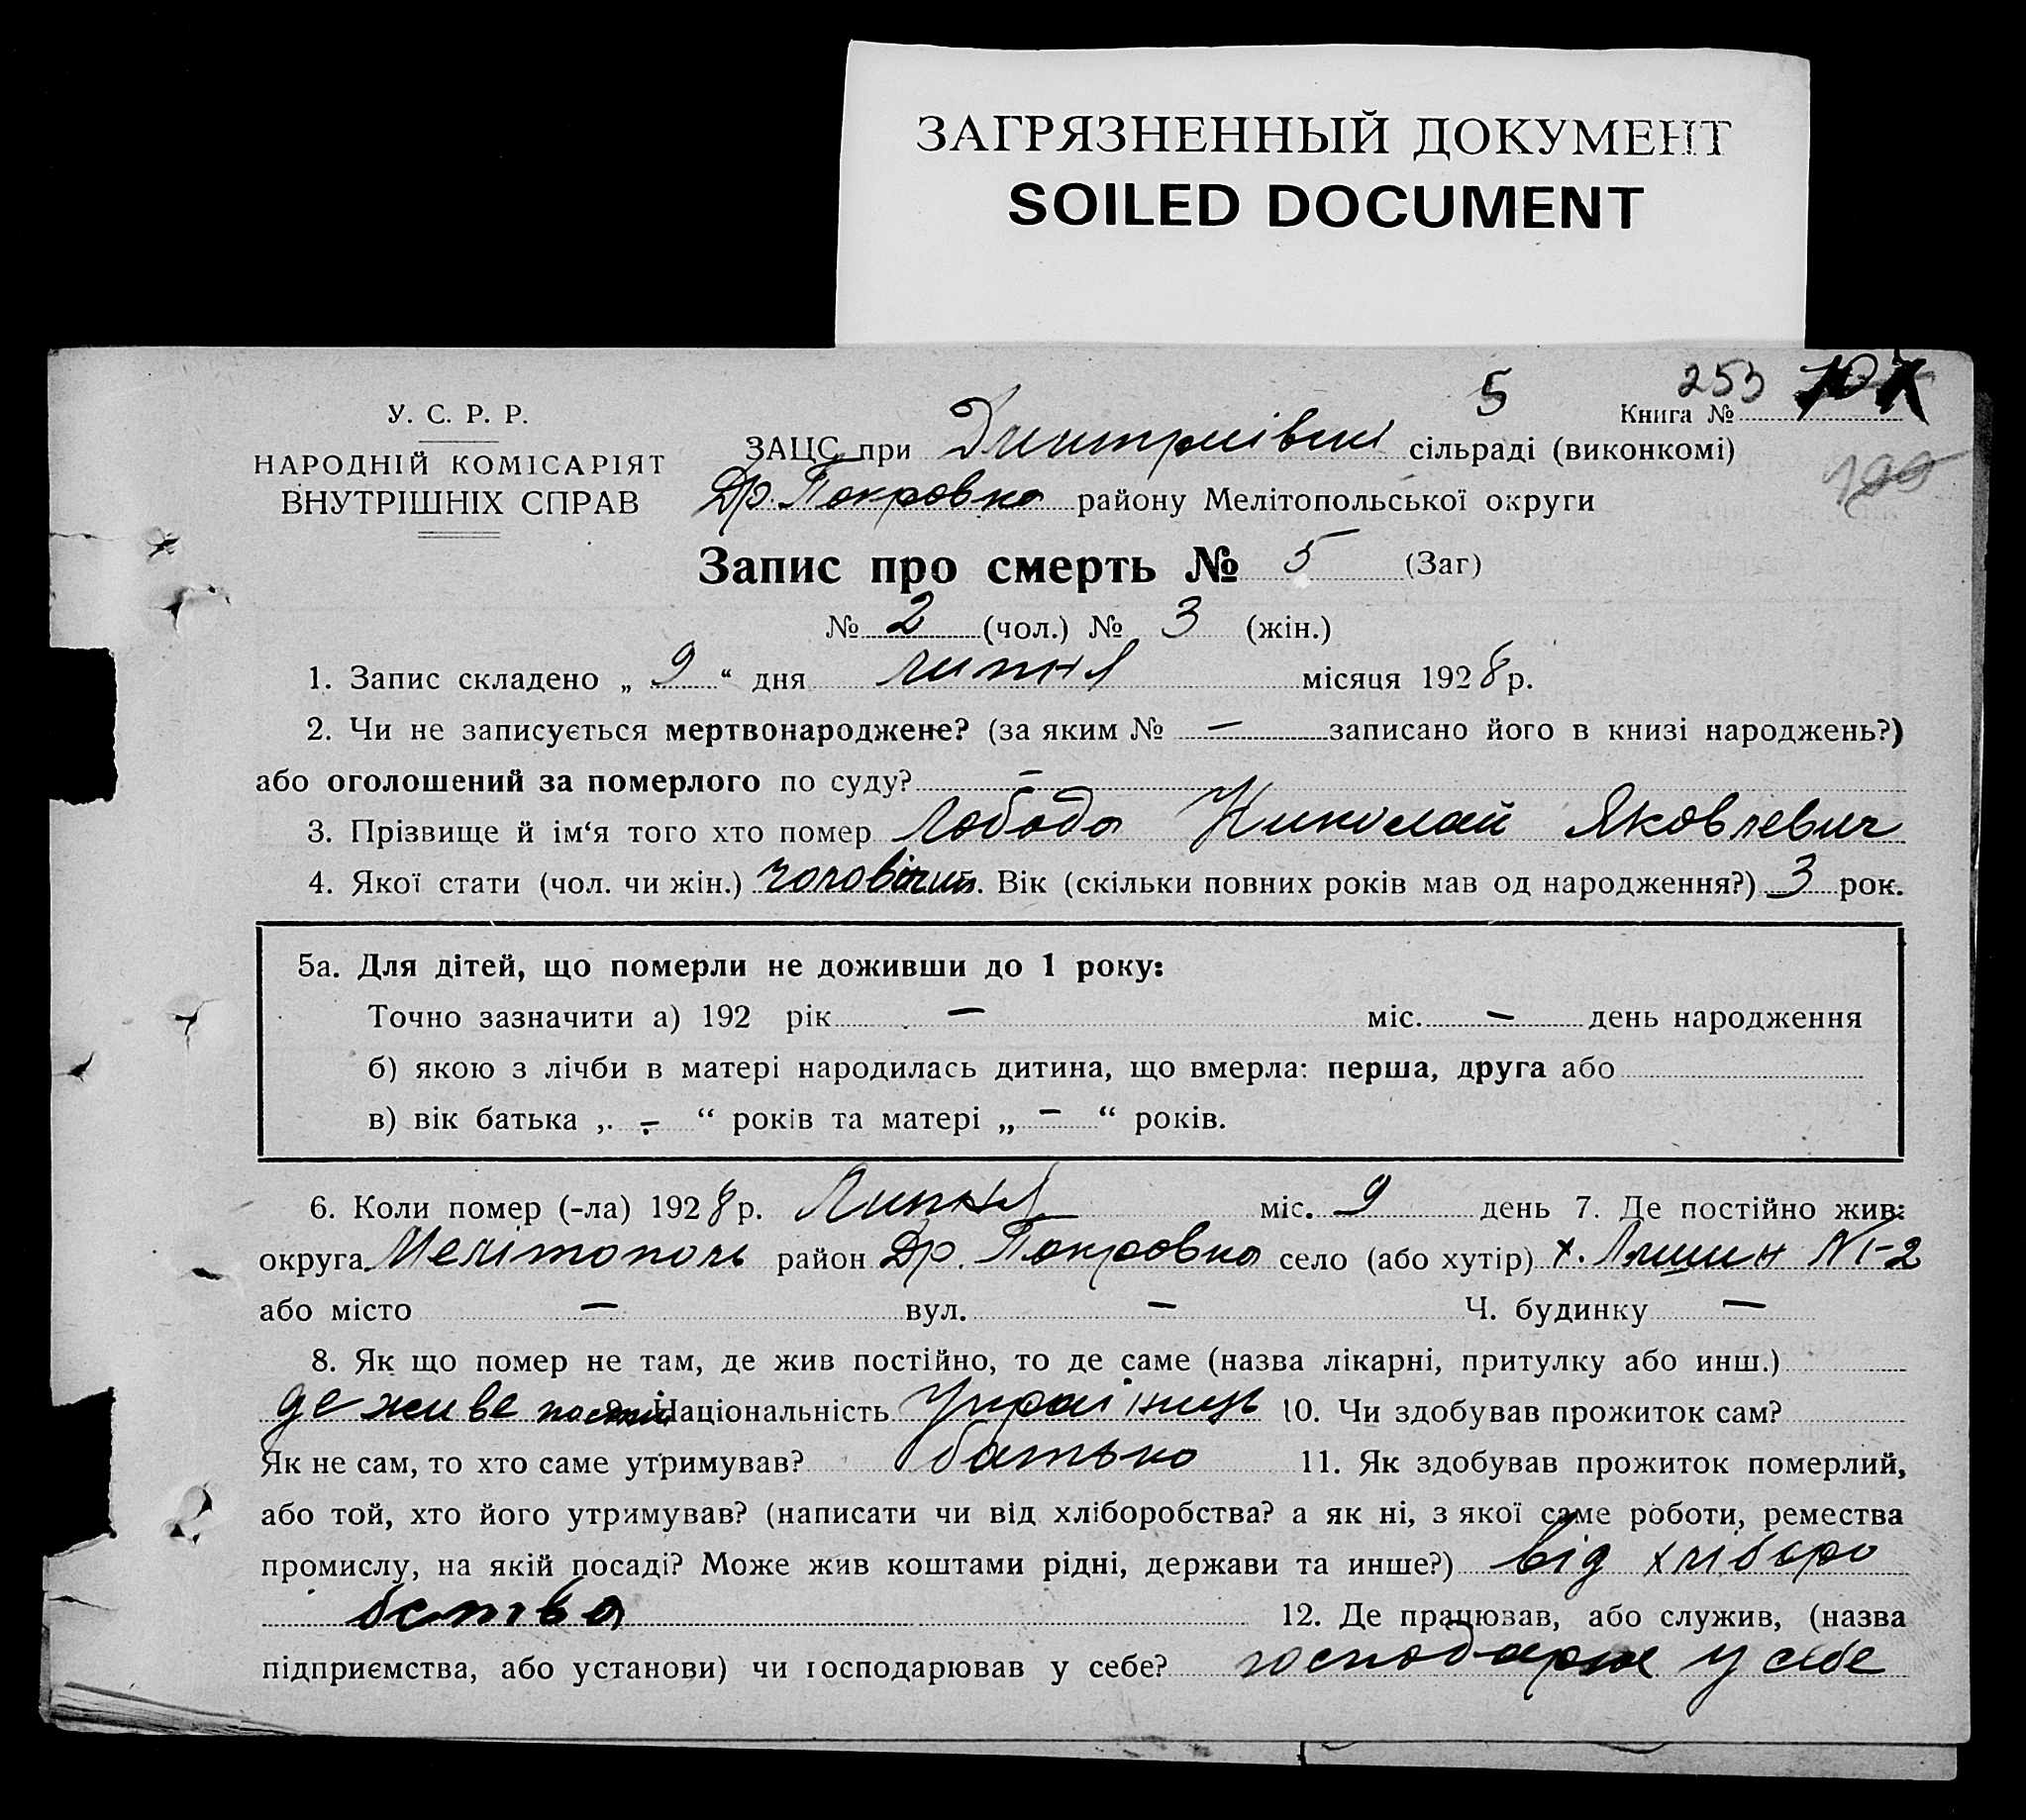 ЗАГРЯЗНЕННЫЙ ДОКУМЕНТ
SOILED DOCUMENT
5 253
У. С. Р. Р. Книга №
НАРОДНІЙ КОМІСАРІЯТ ЗАЦС при Дмитрівській сільраді (виконкомі)
ВНУТРІШНІХ СПРАВ Др. Покровка району Мелітопольської округи
Запис про смерть № 5 (Заг)
№ 2 (чол.) № 3 (жін.)
1. Запис складено „ 9 “ дня липня місяця 1928 р.
2. Чи не записується мертвонароджене? (за яким № — записано його в книзі народжень?)
або оголошений за померлого по суду? —
3. Прізвище й ім‘я того хто помер Лобода Николай Яковлевич
4. Якої стати (чол. чи жін.) чоловічит. Вік (скільки повних років мав од народження?) 3 рок.
5а. Для дітей, що померли не доживши до 1 року:
Точно зазначити а) 192 рік — міс. — день народження
б) якою з лічби в матері народилась дитина, що вмерла: перша, друга або
в) вік батька „ — “ років та матері „ — “ років.
6. Коли помер (-ла) 1928 р. Липня міс. 9 день 7. Де постійно жив:
округа Мелітополь район Др. Покровка село (або хутір) х. №-2
або місто — вул. — Ч. будинку —
8. Як що помер не там, де жив постійно, то де саме (назва лікарні, притулку або инш.)
де живе Національність Українець 10. Чи здобував прожиток сам?
Як не сам, то хто саме утримував? батько 11. Як здобував прожиток померлий,
або той, хто його утримував? (написати чи від хліборобства? а як ні, з якої саме роботи, ремества
промислу, на якій посаді? Може жив коштами рідні, держави та инше?) від хліборо
бства 12. Де працював, або служив, (назва
підприємства, або установи) чи господарював у себе? господарює у себе